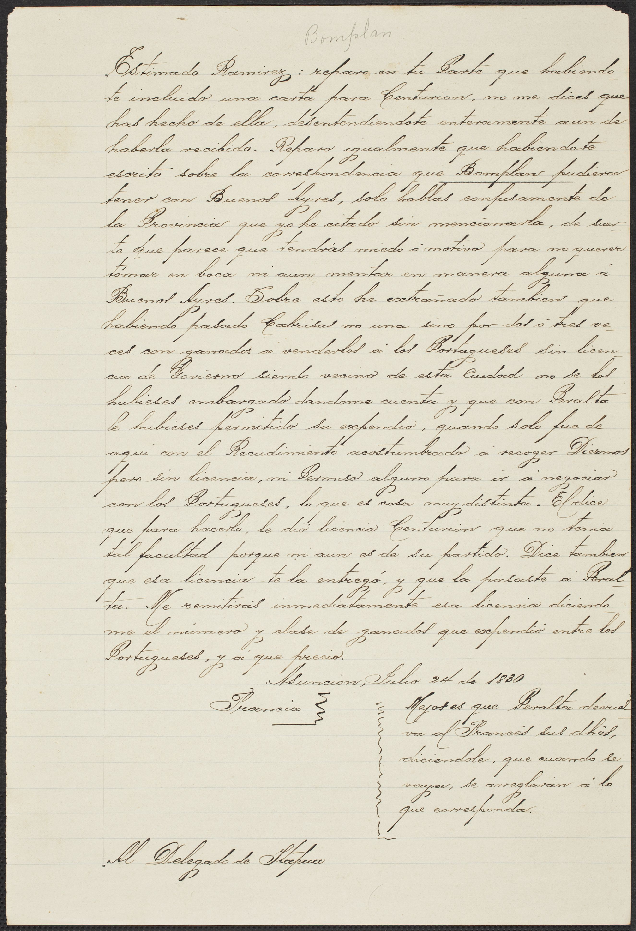 Bomplan
Estimado Ramirez: reparo en tu Parte que habiendo
te incluido una carta para Centurion, no me dices que
has hecho de ella, desentendiendote enteramente aun de
haberla recibido. Reparo igualmente que habiendote
escrito sobre la correspondencia que Bomplan pudiera
tener con Buenos Ayres, solo hablas confusamente de
la Provincia que yo he citado sin mencionarla, de suer
te que parece que tendrias miedo ó motivo para no querer
tomar en boca ni aun mentar en manera alguna á
Buenos Ayres. Sobre esto he extrañado tambien que
habiendo pasado no una sino por dos ó tres ve-
ces con ganados a venderlos á los Portugueses sin licen
cia del Govierno siendo vecino de esta Ciudad no se los
hubieses embargado dandome cuenta y que con Peralta
le hubieses permitido su expendio, quando solo fue de
aqui con el Recudimiento acostumbrado á recoger Diezmos
pero sin licencia, ni Permiso alguno para ir á negociar
con los Portugueses, lo que es cosa muy distinta. El dice
que para hacerlo, le dió licencia Centurion que no tenia
tal facultad porque ni aun es de su partido. Dice tambien
que esa licencia te la entregó, y que la pasaste á Peral-
ta. Me remitirás inmediatamente esa licencia diciendo
me el número y clase de ganados que expendió entre los
Portugueses, y á que precio.
Asuncion, Julio 24 de 1830
Francia
Mejor es que Peralta devuel
va al Francis sus
diciendole, que cuando se
vaya, se arreglarán á lo
que corresponda.
Al Delegado de Itapua